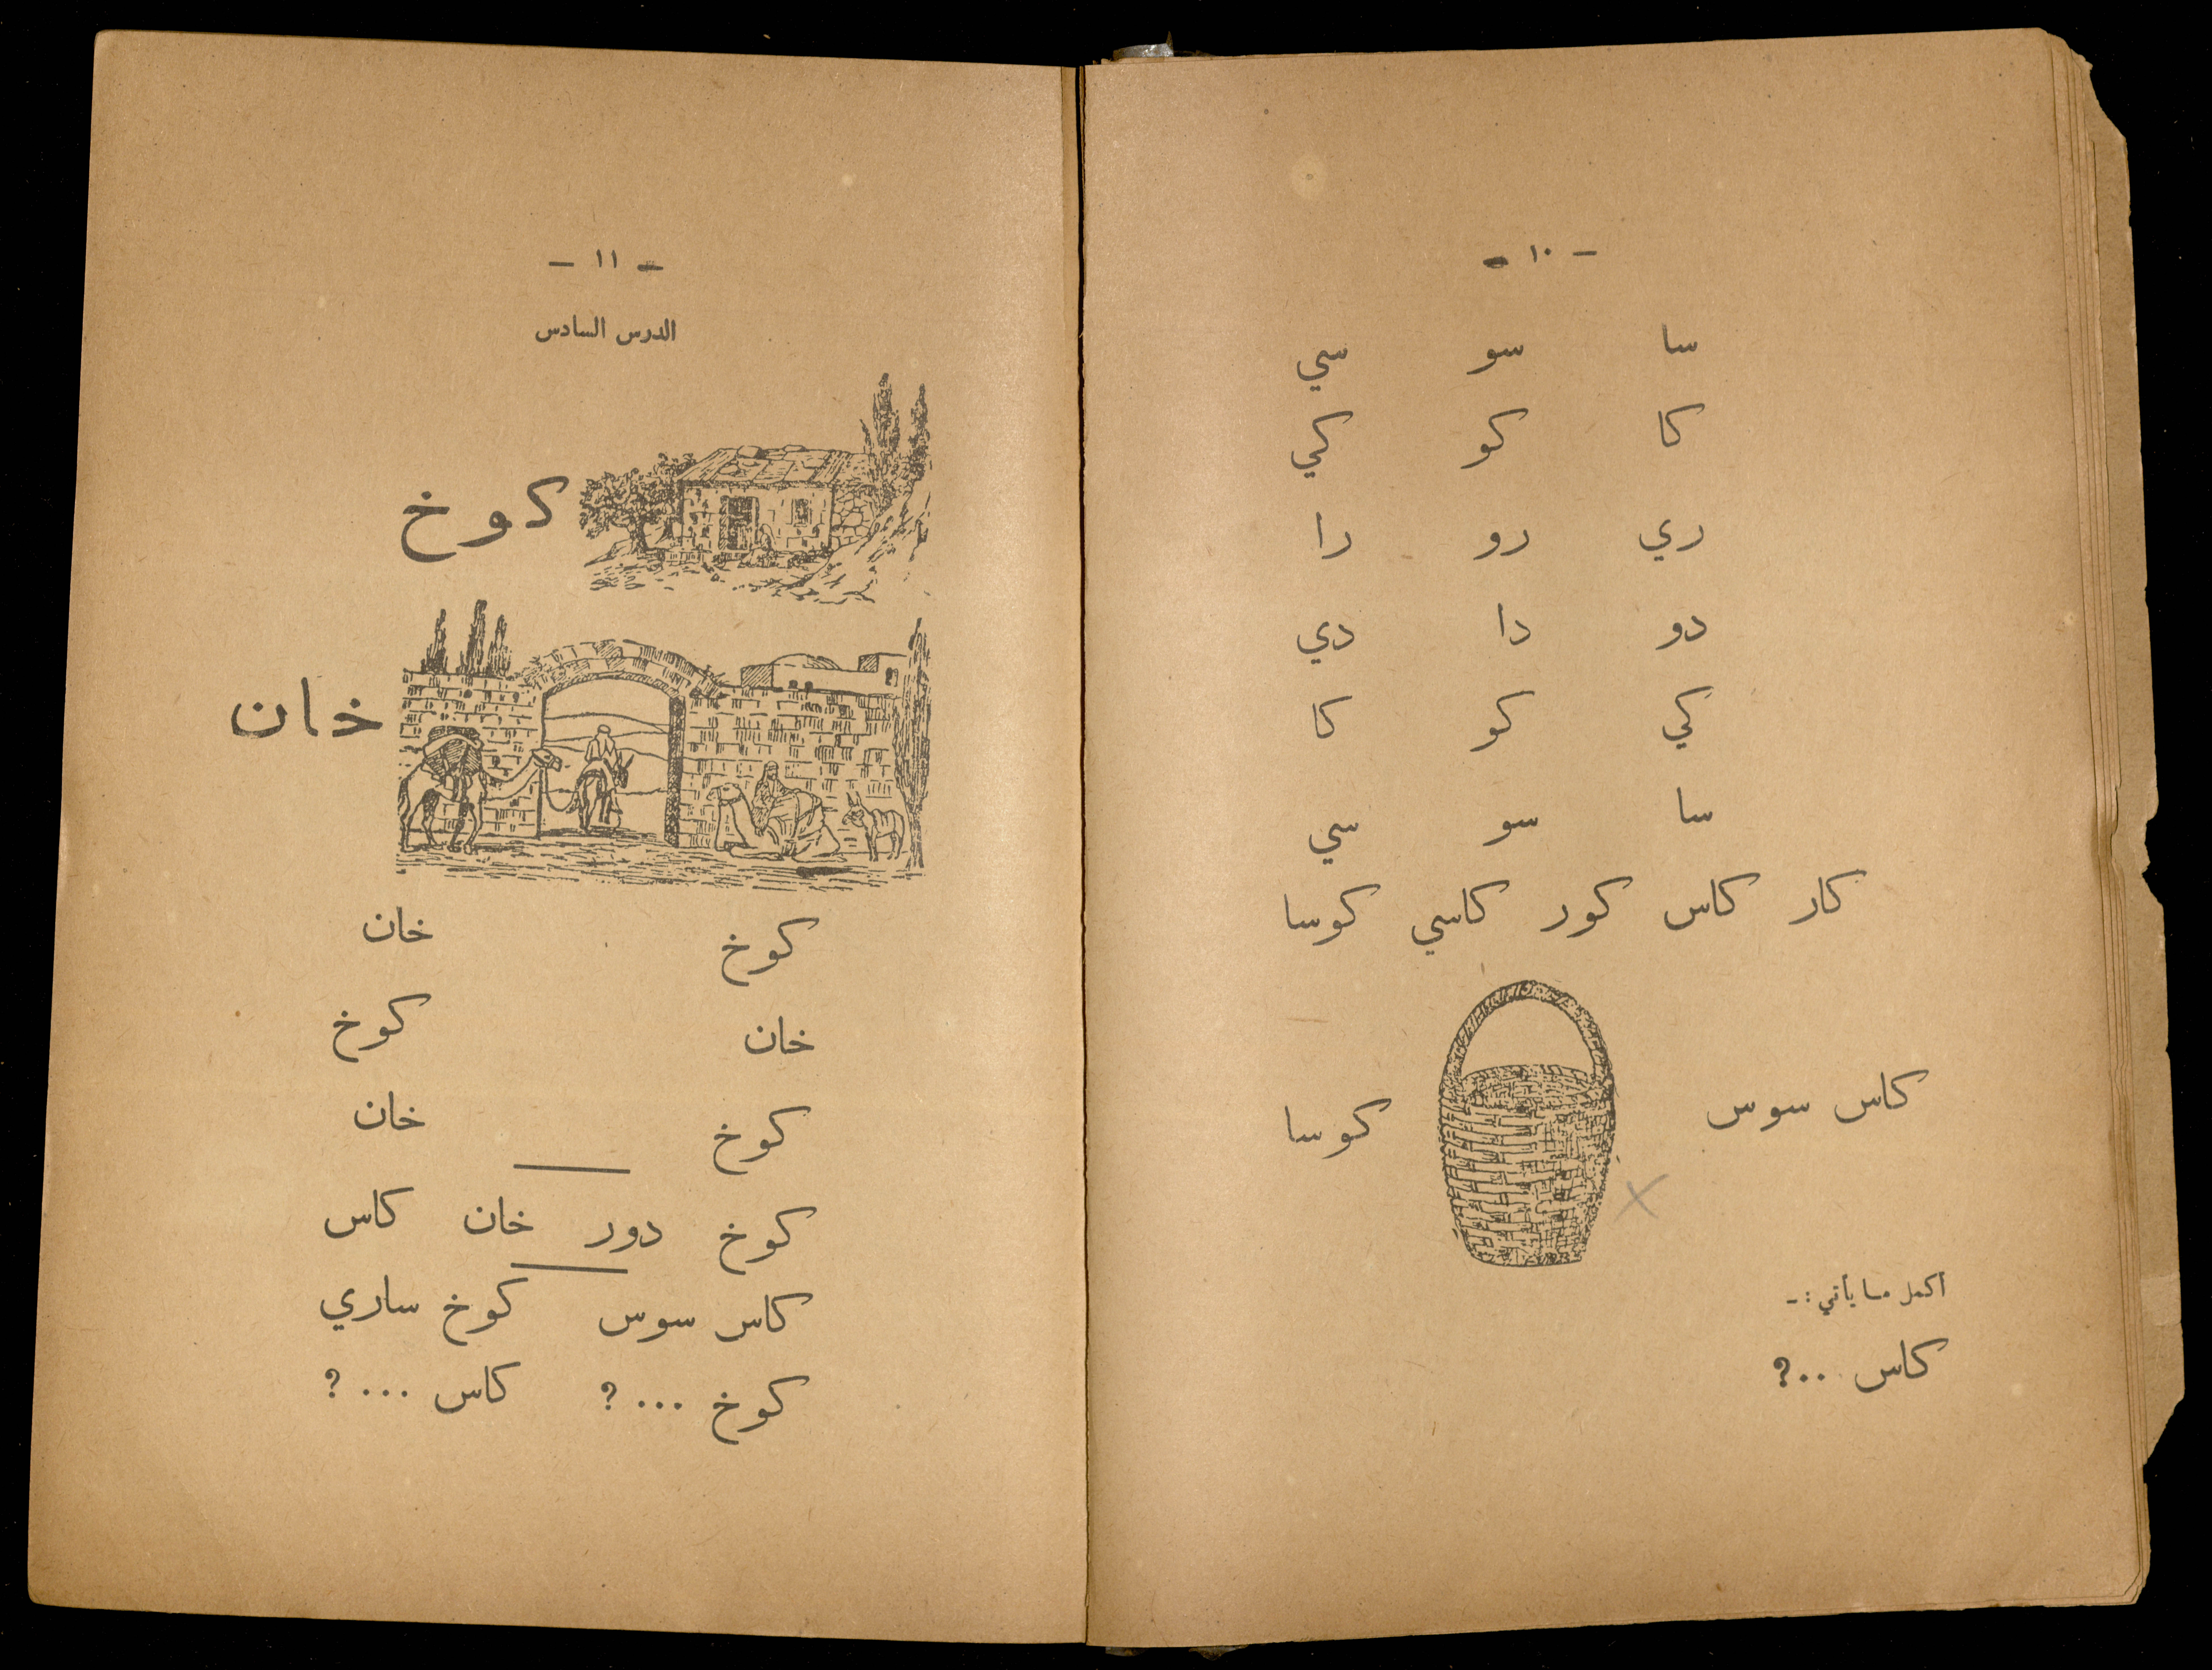 - ١٠ -
سا سو سي
كا كو كي
ري رو را
دو دا دي
كي كو كا
سا سو سي
كار كاس كور كاسي كوسا
كاس سوس كوسا
أكمل ما يأتي :-
كاس ..؟
- ١١ -
الدرس السادس
كوخ
خان
كوخ خان
خان كوخ
كوخ خان
كوخ دور خان كاس
كاس سوس كوخ ساري
كوخ ...؟ كاس ...؟